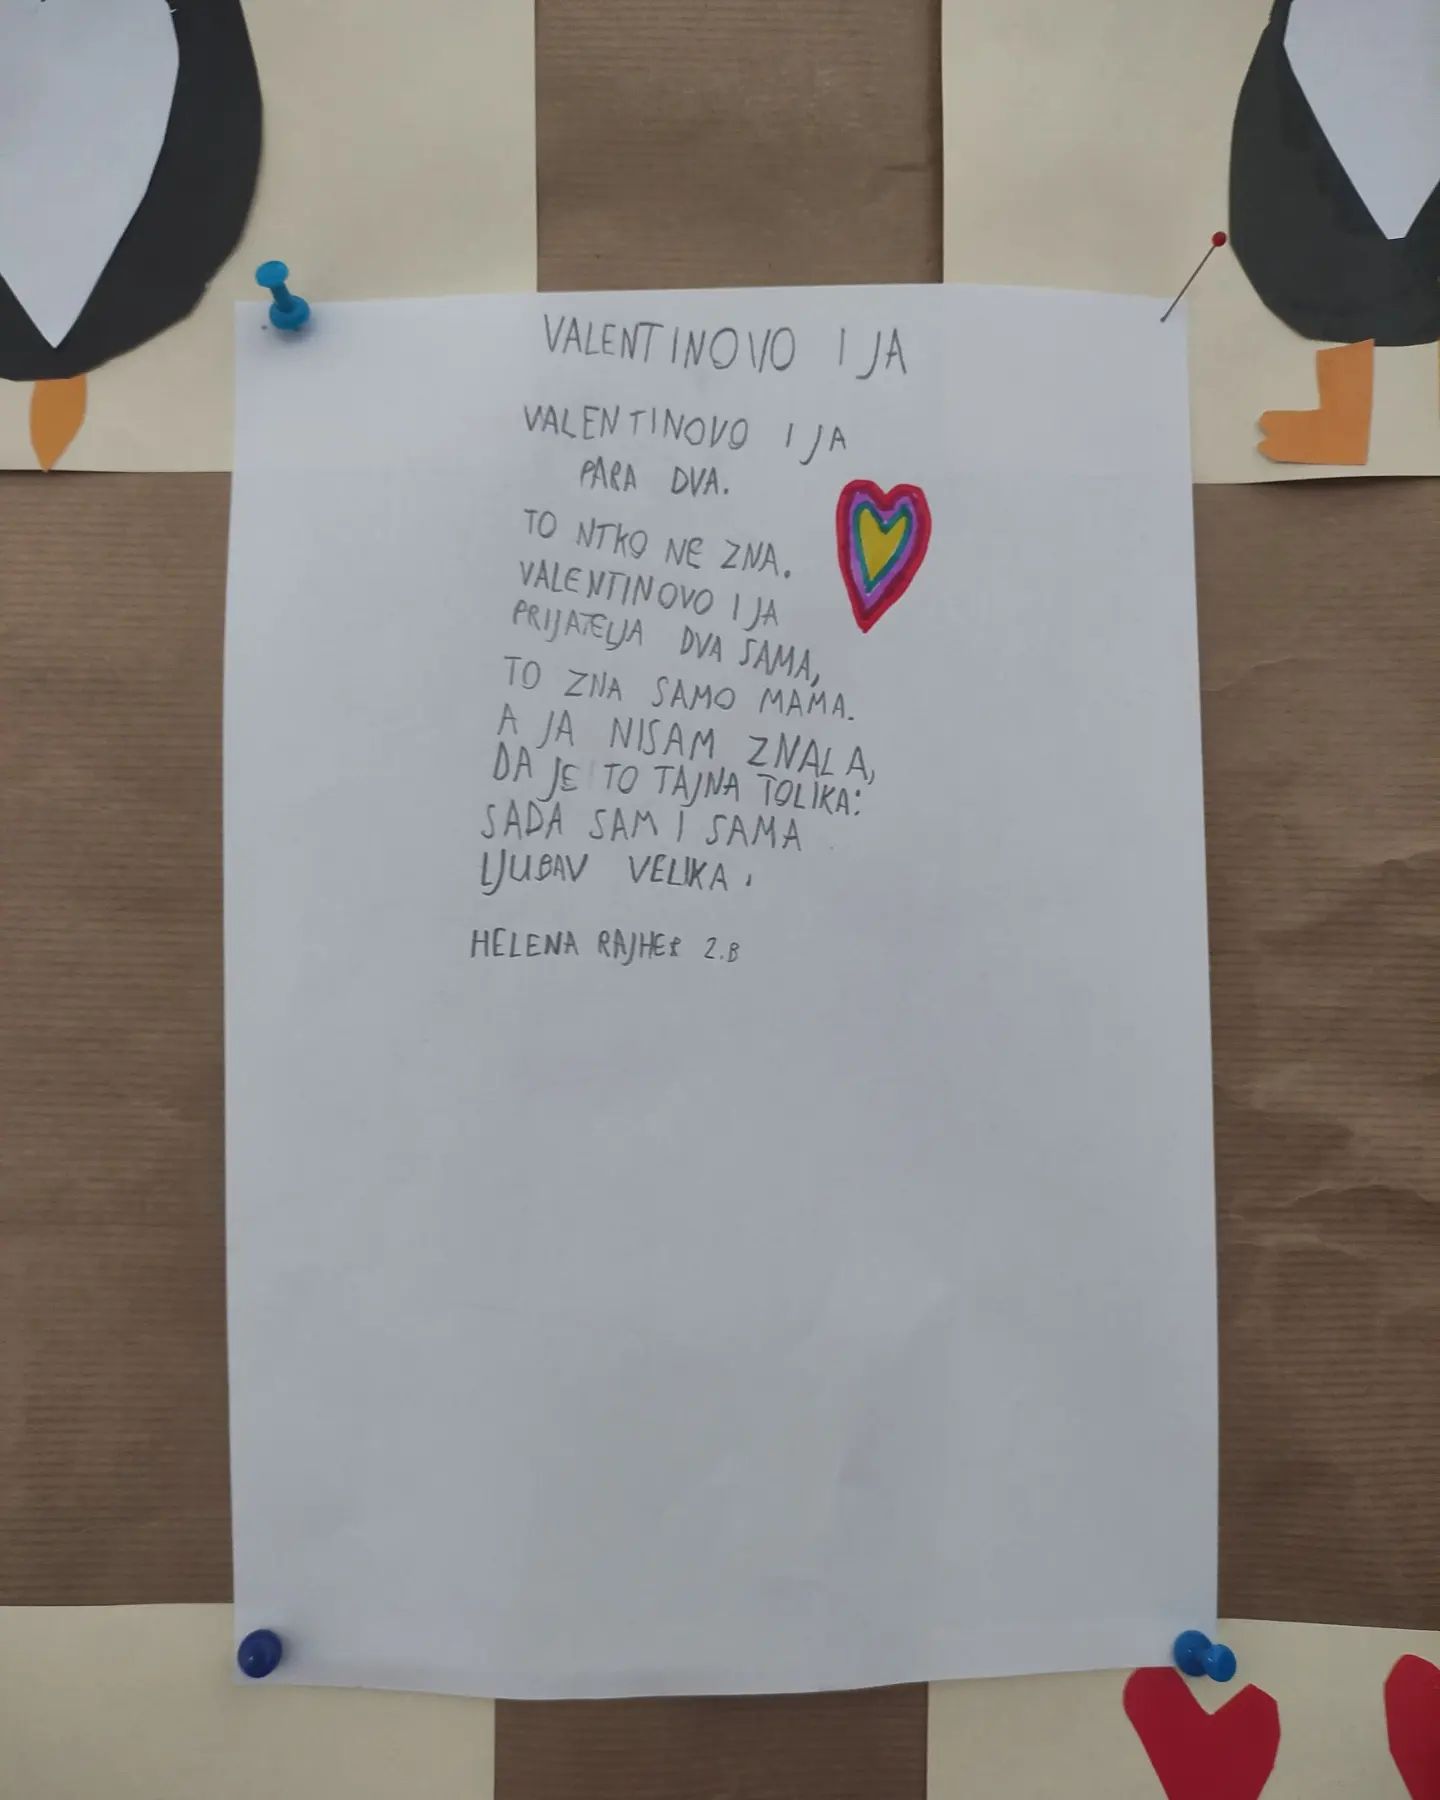 VALENTINOVO I JA
VALENTINOVO I JA
PARA DVA.
TO NTKO NE ZNA.
VALENTINOVO I JA
PRIJATELJA DVA SAMA,
TO ZNA SAMO MAMA.
A JA NISAM ZNALA,
DA JE TO TAJNA TOLIKA:
SADA SAM I SAMA
LJUBAV VELIKA.
HELENA RAJHER 2.B